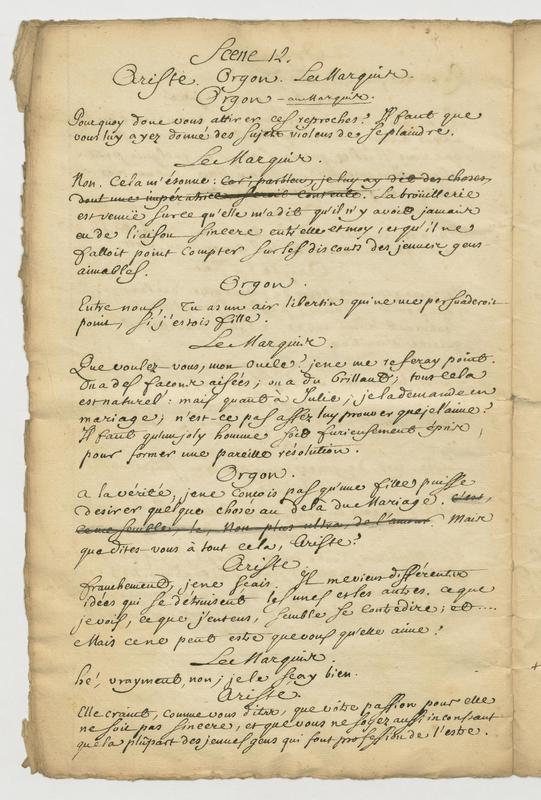 Scene 12.
Ariste. Orgon. Le Marquis.
Orgon - au Marquis.
Pourquoy donc vous attirer ces reproches? Il faut que
vous luy ayez donné des sujets violens de se plaindre.
Le Marquis.
Non. Cela m'étonne: car, parbleu, je luy ay dit des choses,
dont une impératrice seroit contente. La broüillerie
est venüe sur ce qu'elle m'a dit qu'il n'y avoit jamais
eu de liaison sincere entr'elle et moy, et qu'il ne
falloit point compter sur les discours des jeunes gens
aimables.
Orgon.
Entre nous, Tu as un air libertin qui ne me persuaderoit
point, si j'estois fille.
Le Marquis.
Que voulez-vous, mon Oncle? je ne me referay point.
On a des façons aisées; on a du brillant; tout cela
est naturel: mais quant à Julie; je la demande en
mariage; n'est-ce pas assez luy prouver que je l'aime?
Il faut qu'un joly homme soit furieusement épris,
pour former une pareille résolution.
Orgon.
a la vérité, je ne conçois pas qu'une fille puisse
desirer quelque chose au dela du Mariage. c'est,
ce me semble, le, Non plus ultra, de l'amour. Mais
que dites vous à tout cela, Ariste?
Ariste.
franchement, je ne sçais. Il me vient différentes
idées qui se détruisent les unes et les autres. ce que
je vois, ce que j'entens, semble se contredire; et ....
Mais ce ne peut estre que vous qu'elle aime?
Le Marquis.
hé, vrayment, non; je le sçay bien.
Ariste.
Elle craint, comme vous dites, que vôtre passion pour elle
ne soit pas sincere, et que vous ne soyez aussi inconstant
que la plûpart des jeunes gens qui font profession de l'estre.